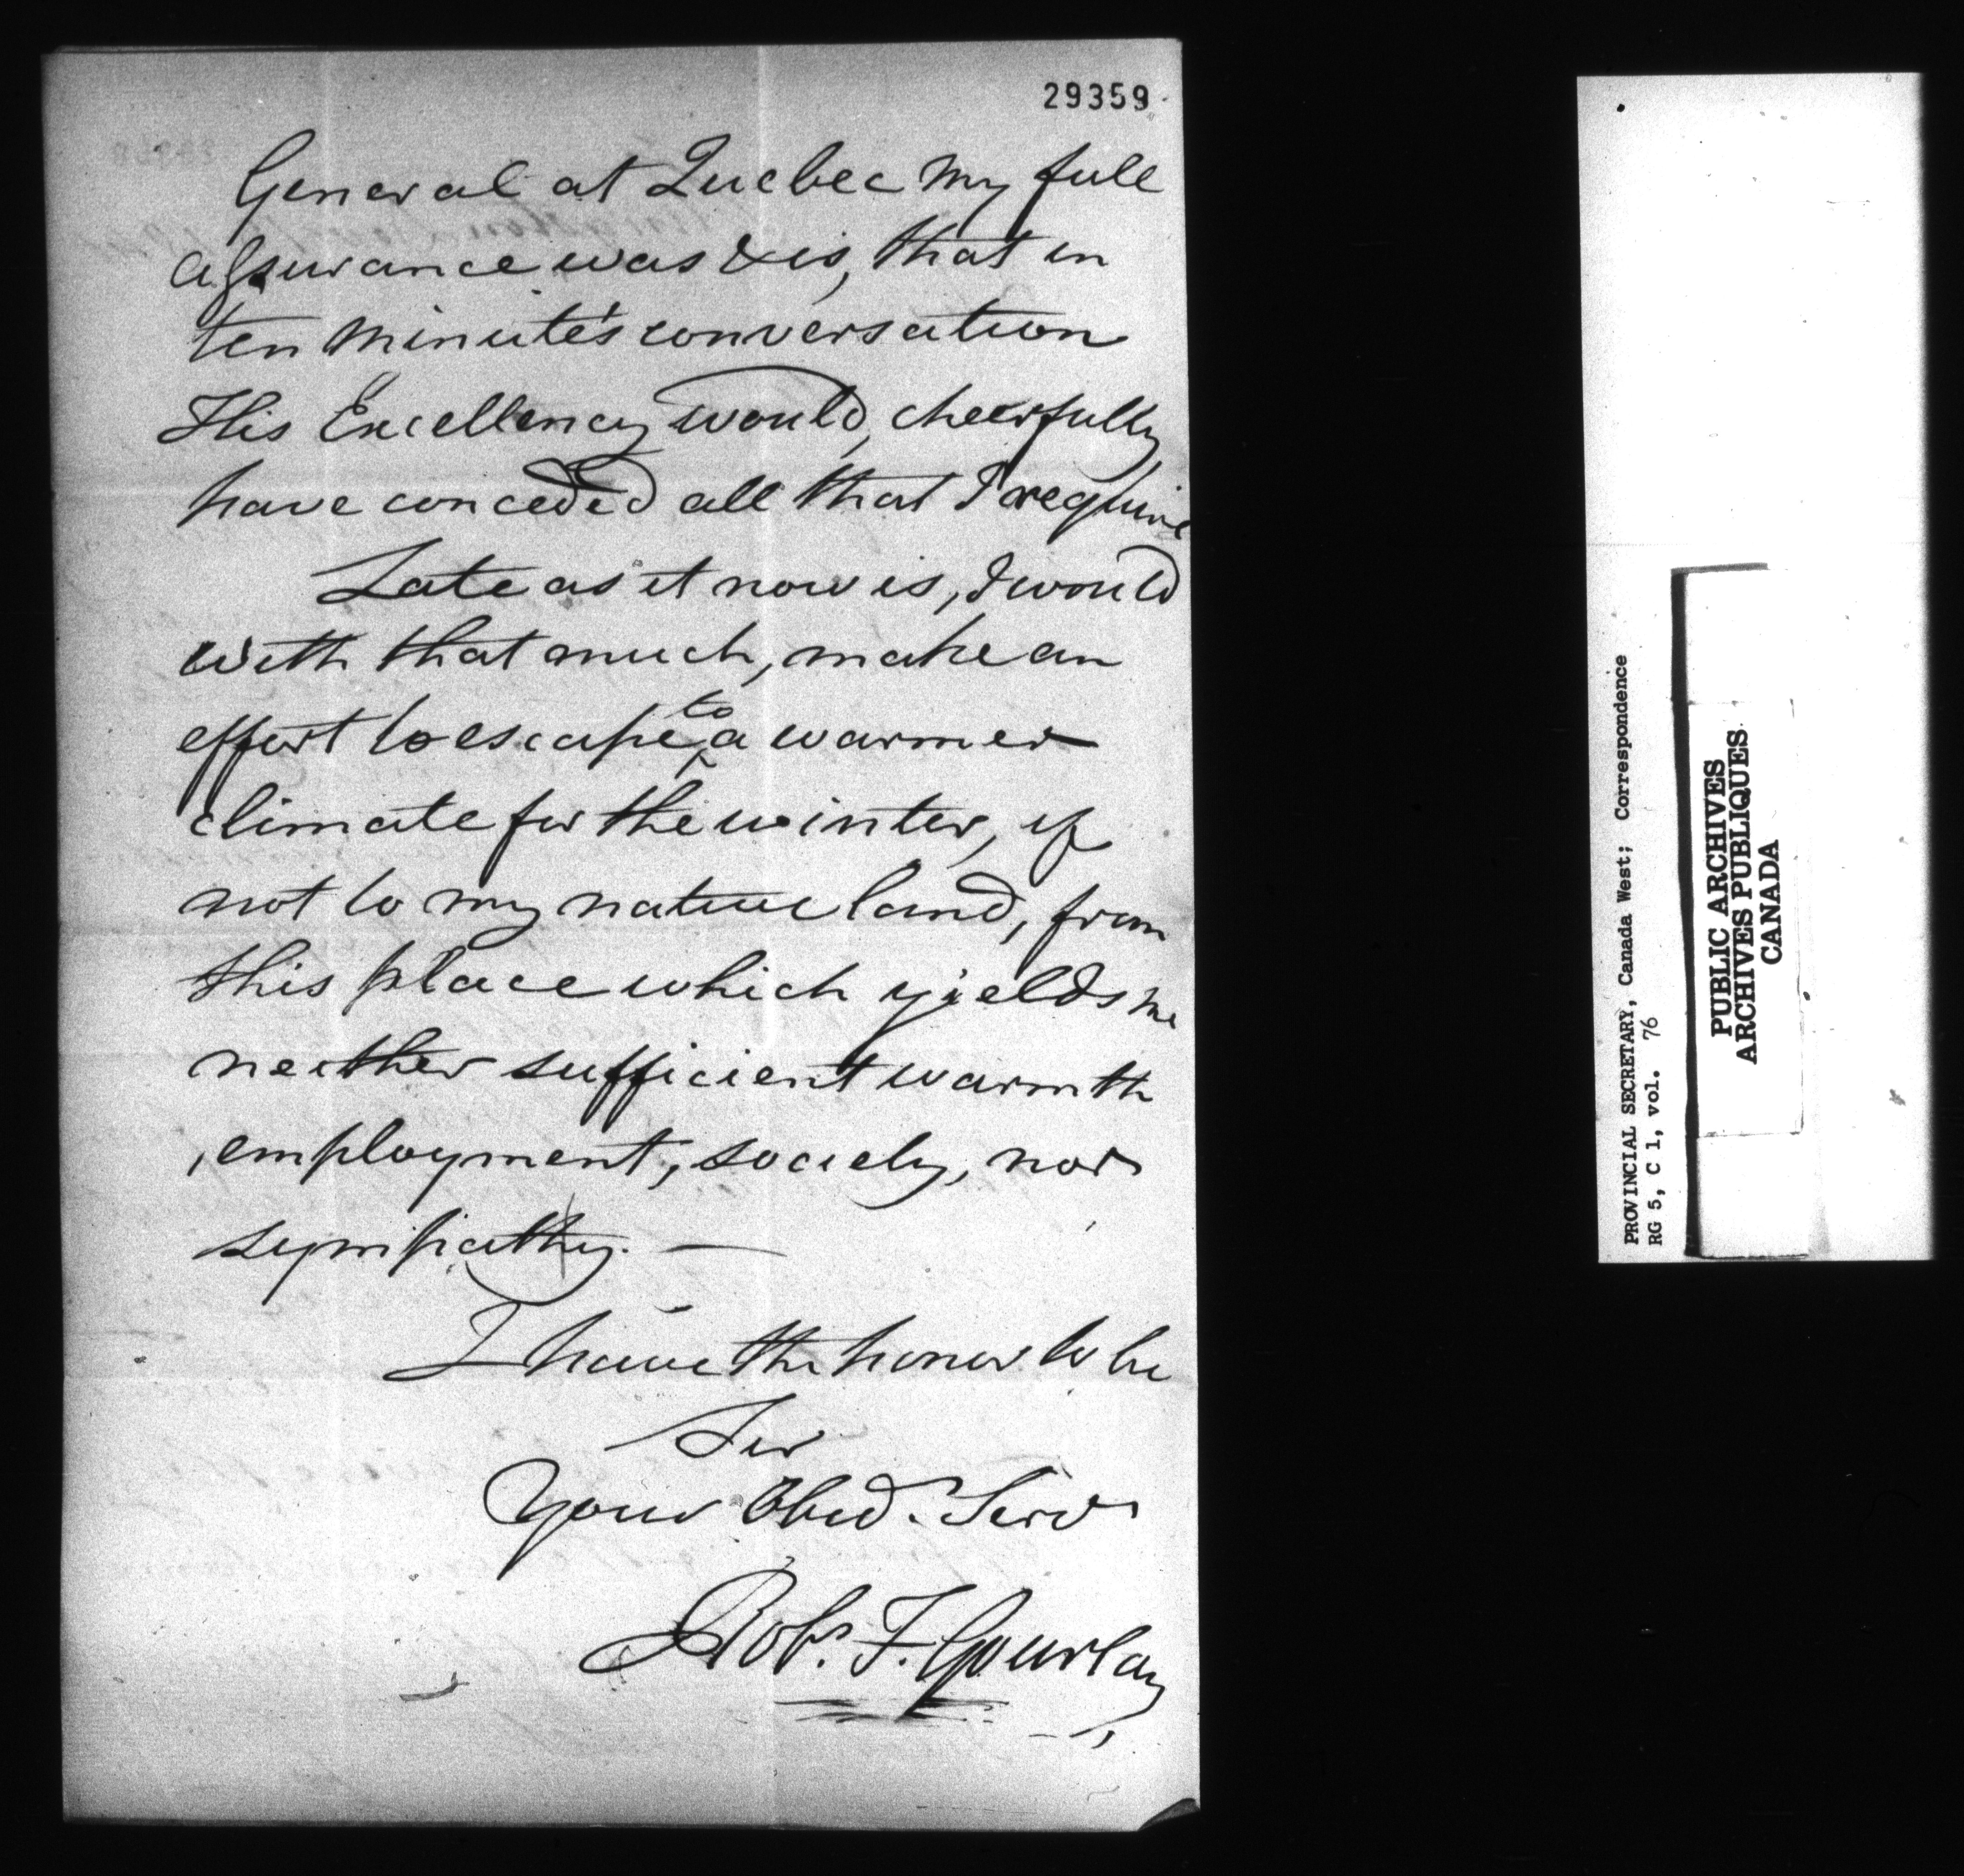 29359
General at Quebec my full
assurance was & is, that in
ten minute's conversation
His Excellency would, cheerfully
have conceded all that I require
Late as it now is, I would
with that much, make an
effort to escape to a warmer
climate for the winter, if
not to my native land, from
this place which yields me
neither sufficient warmth
, employment, society, nor
sympathy. —
I have the honor to be
Sir
Your Obed. Serv
Robt. F. Gourlay
PROVINCIAL SECRETARY, Canada West; Correspondence
RG 5, C 1, vol. 76
PUBLIC ARCHIVES
ARCHIVES PUBLIQUES
CANADA